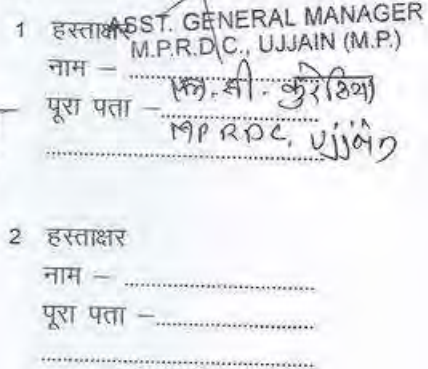 1 हस्ताक्षर ASST. GENERAL MANAGER
M.P.R.D.C., UJJAIN (M.P.)
नाम –
पूरा पता –
MPRDC, Ujjain
2 हस्ताक्षर
नाम –
पूरा पता –